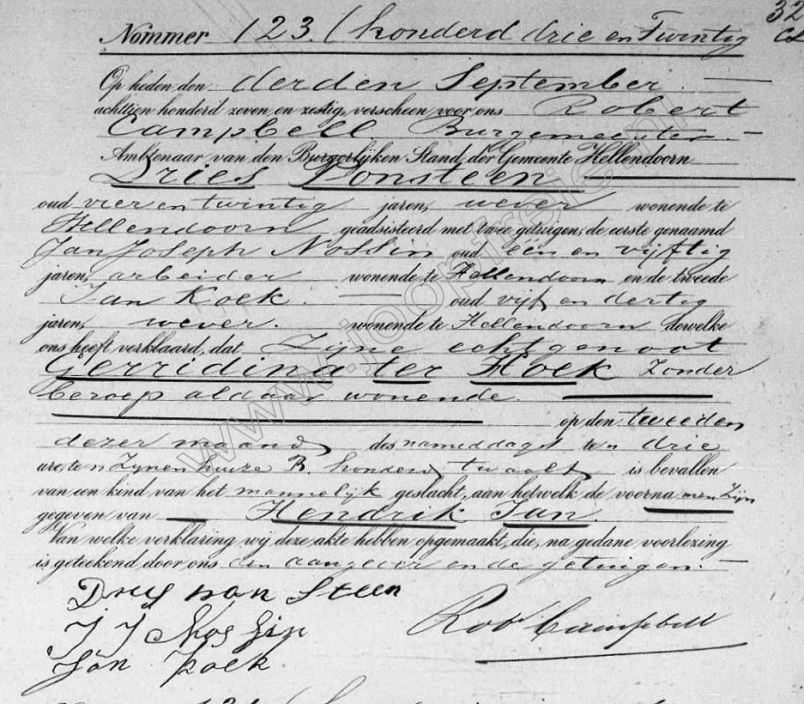 32
Nommer 123. (honderd drie en Twintig
Op heden den derden September.
achttien honderd zeven en zestig, verscheen voor ons Robert
Campbell Burgemeester.
Ambtenaar van den Burgerlijken Stand, der Gemeente Hellendoorn
Dries Ponsteen
oud vier en twintig jaren, wever wonende te
Hellendoorn geadsisteerd met twee getuigen, de eerste genaamd
Jan Joseph Nossin oud één en vijftig
jaren, arbeider wonende te Hellendoorn en de tweede
Jan Koek. oud vijf en dertig
jaren, wever. wonende te Hellendoorn dewelke
ons heeft verklaard, dat Zijne echtgenoot
Gerridina ter Hoek Zonder
beroep aldaar wonende.
op den tweeden
dezer maand des namiddags ten drie
ure, te n Zijnen huize B. honderd twaalf is bevallen
van een kind van het mannelijk geslacht, aan hetwelk de voorna men Zijn
gegeven van Hendrik Jan.
Van welke verklaring wij deze akte hebben opgemaakt, die, na gedane voorlezing
is geteekend door ons den aangever en de getuigen.
Dries pon Steen
J J Nossin
Rob Campbell
Jan Koek